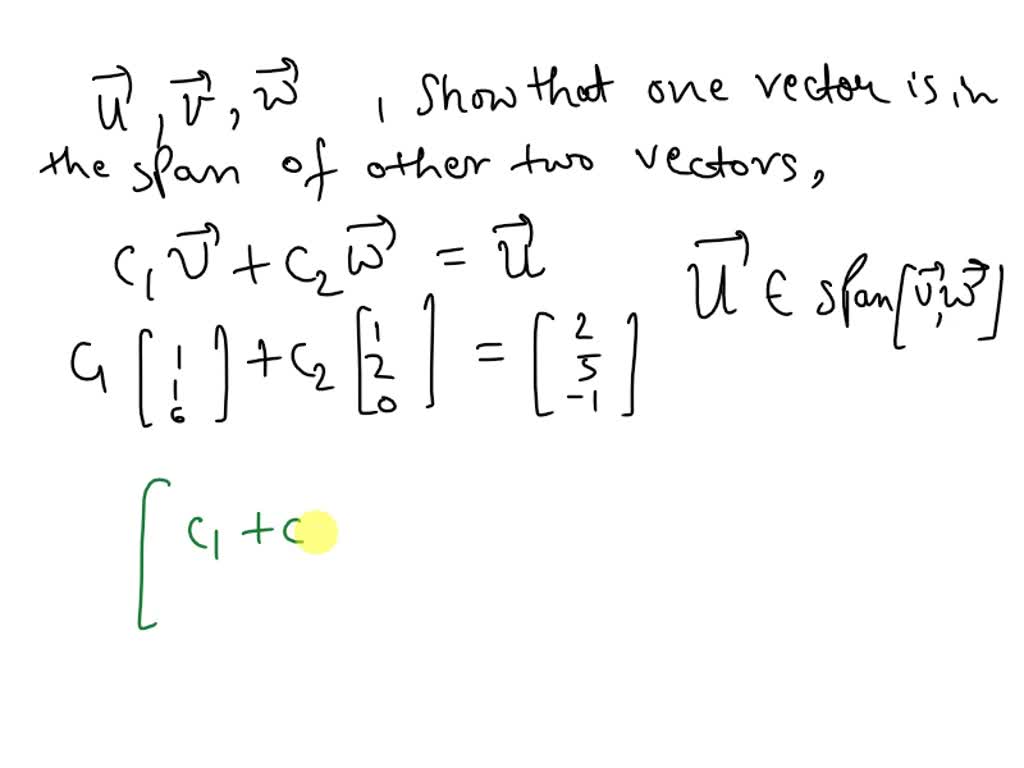 u⃗, v⃗, w⃗ , Show that one vector is in
the span of other two vectors,
c₁ v⃗ + c₂ w⃗ = u⃗ u⃗ ∈ span[v⃗, w⃗]
c₁ [1 1 6] + c₂ [1 2 0] = [2 5 -1]
[ c₁ + c